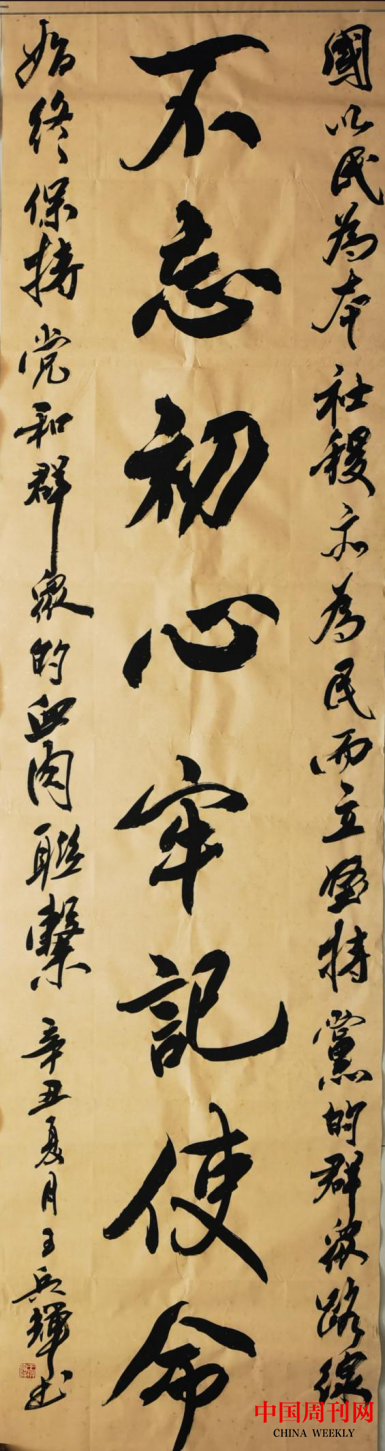 國以民為本社稷亦為民而立堅持黨的群眾路線
不忘初心牢記使命
始终保持党和群眾的血肉聯繫
辛丑夏月王兵輝书
中国周刊网
CHINA WEEKLY